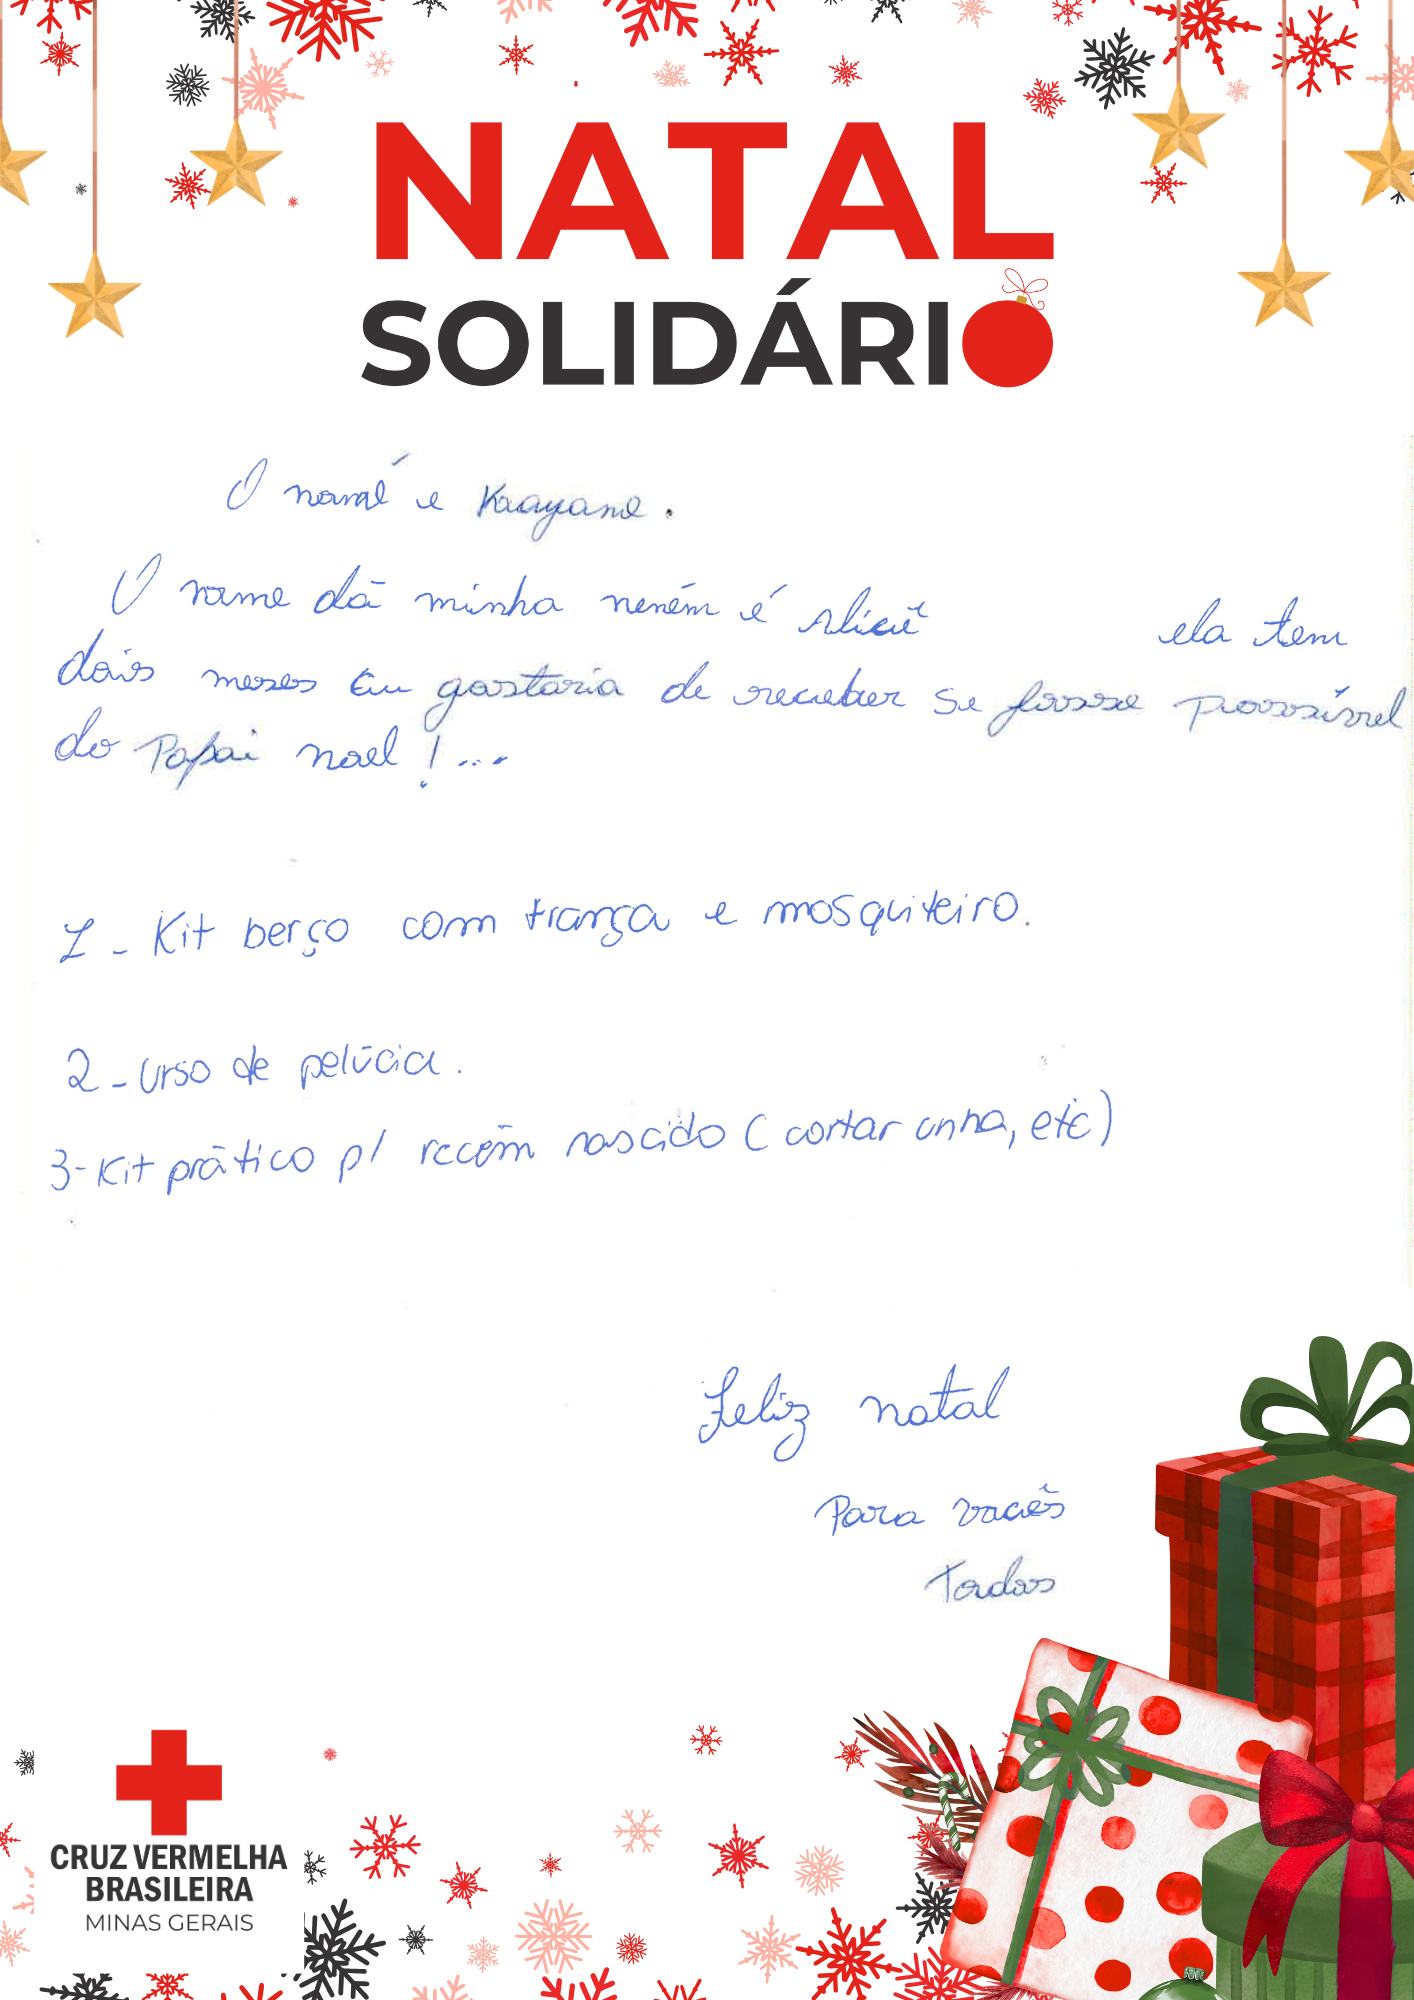 NATAL
SOLIDÁRIO
O nomé e Kaayane.
O nome dā minha neném é Alicê ela tem
dois meses Eu gostaria de receber se fosse possível
do Papai noel !...
1 - Kit berço com trança e mosquiteiro.
2 - Urso de pelúcia.
3 - Kit prático p/ recém nascido (cortar unha, etc)
Feliz natal
Para vocês
Todos
CRUZ VERMELHA
BRASILEIRA
MINAS GERAIS